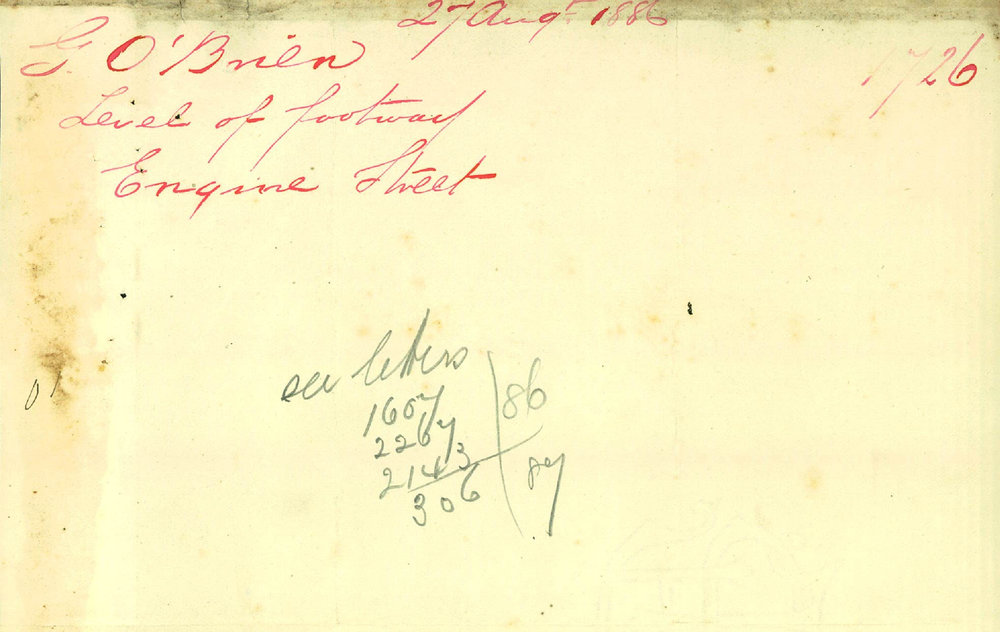 27 Augt 1886
G. O'Brien
1726
Level of footway
Engine Street
see letters
1607
2267
2143
306
86
87